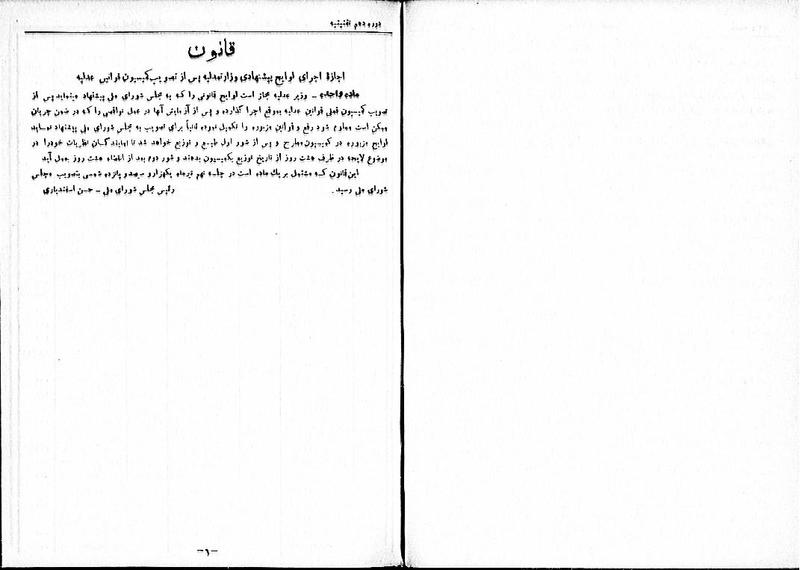 دوره دهم تقنینیه
قانون
اجازهٔ اجرای لوایح پیشنهادی وزارت عدلیه پس از تصویب کمیسیون قوانین عدلیه
مادهٔ واحده – وزیر عدلیه مجاز است لوایح قانونی را که به مجلس شورای ملی پیشنهاد مینماید پس از
تصویب کمیسیون فعلی قوانین عدلیه بموقع اجرا گذارده و پس از آزمایش آنها در عمل نواقصی را که در ضمن جریان
ممکن است معلوم شود رفع و قوانین مزبوره را تکمیل نموده ثانیاً برای تصویب به مجلس شورای ملی پیشنهاد نماید
لوایح مزبوره در کمیسیون مطرح و پس از شور اول طبع و توزیع خواهد شد تا نمایندگان نظریات خود را در
موضوع لایحه در ظرف هشت روز از تاریخ توزیع بکمیسیون بدهند و شور دوم بعد از انقضاء هشت روز بعمل آید
این قانون که مشتمل بر یک ماده است در جلسه نهم تیرماه یکهزار و سیصد و پانزده شمسی بتصویب مجلس
شورای ملی رسید . رئیس مجلس شورای ملی – حسن اسفندیاری
–۱–